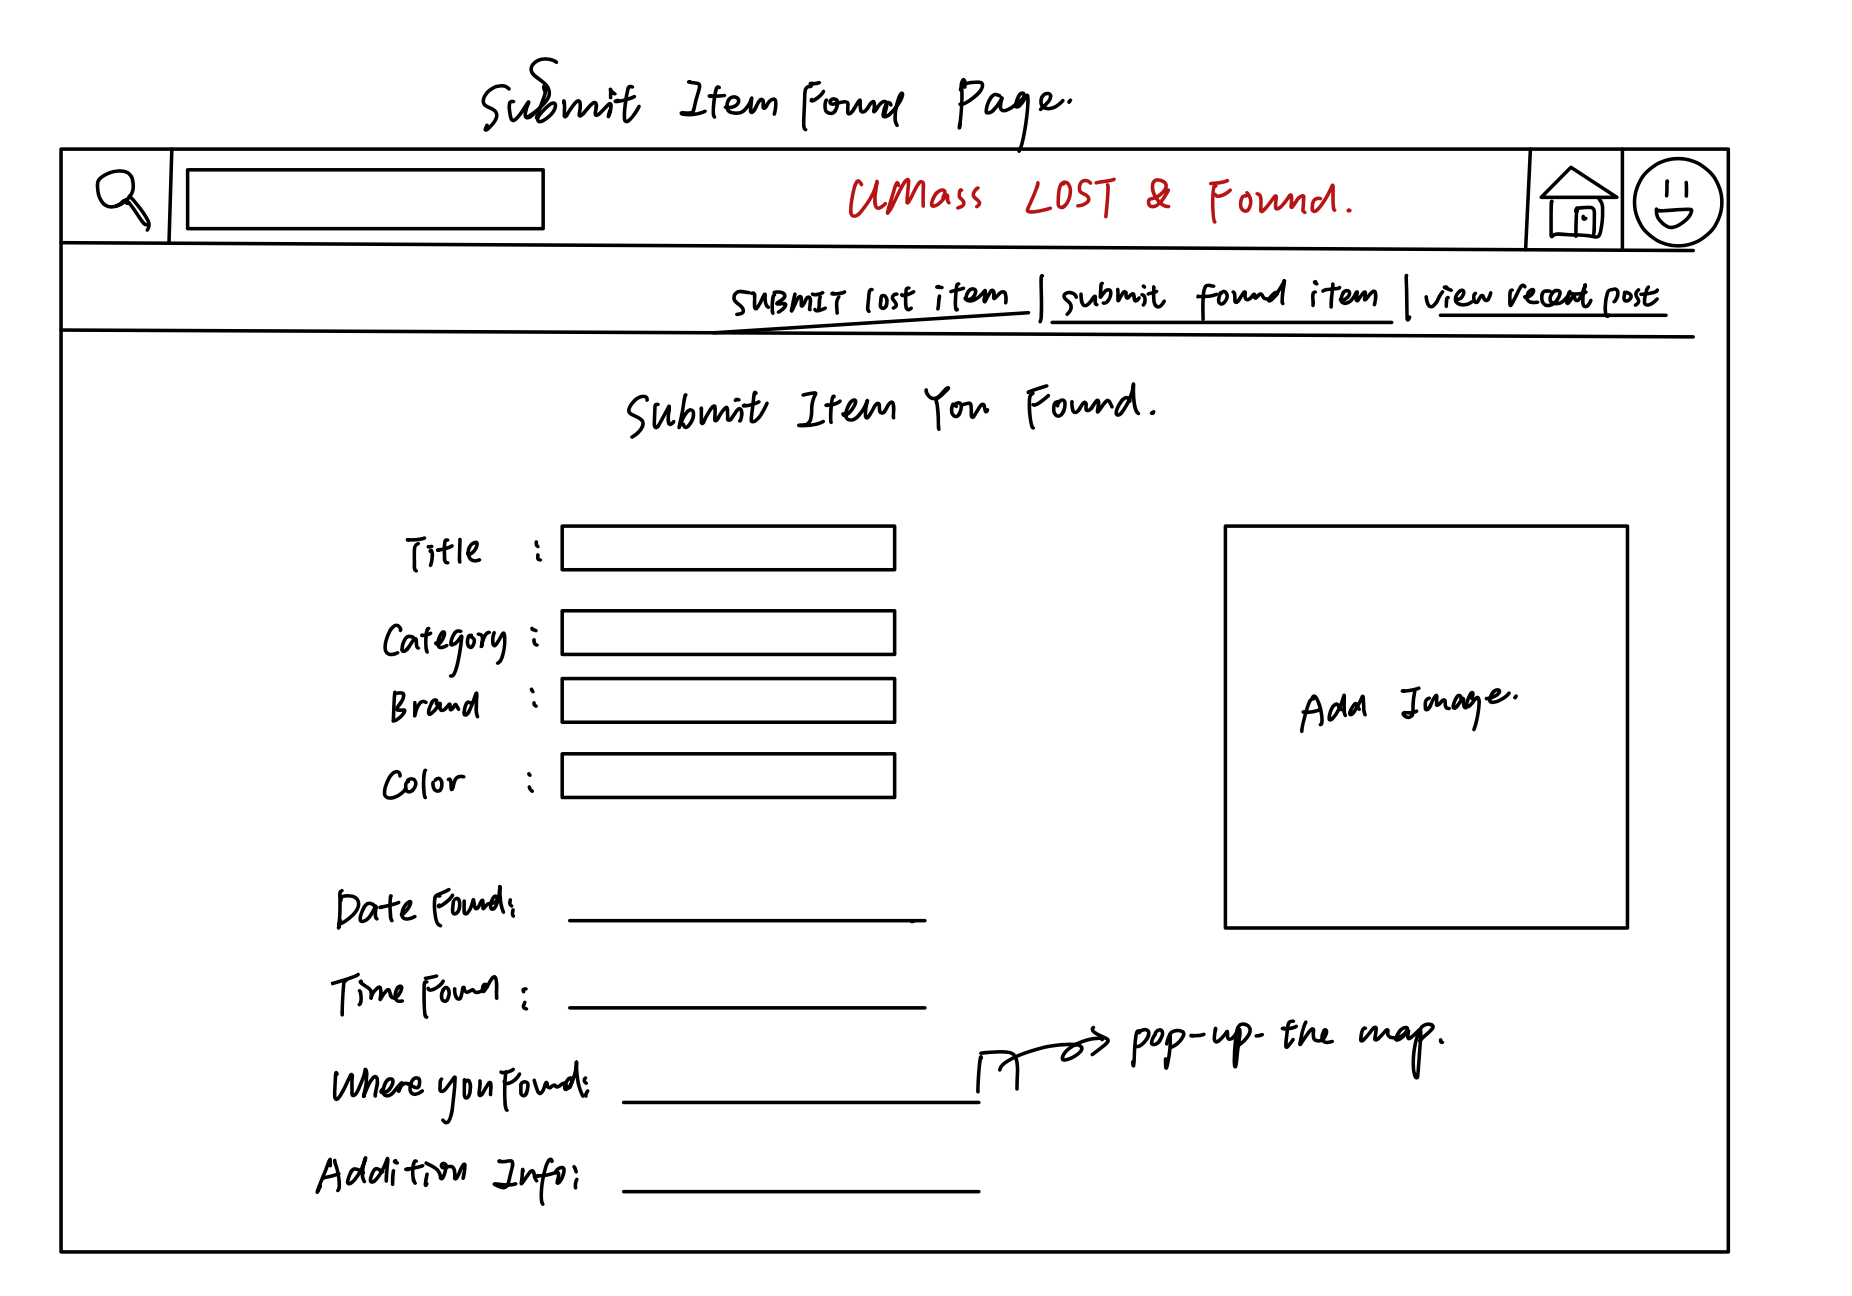 Submit Item Found Page.
UMass LOST & Found.
SUBMIT lost item | submit found item | view recent post
Submit Item You Found.
Title :
Category :
Brand :
Color :
Add Image.
Date Found:
Time Found :
Where you Found:
pop-up- the map.
Addition Info: